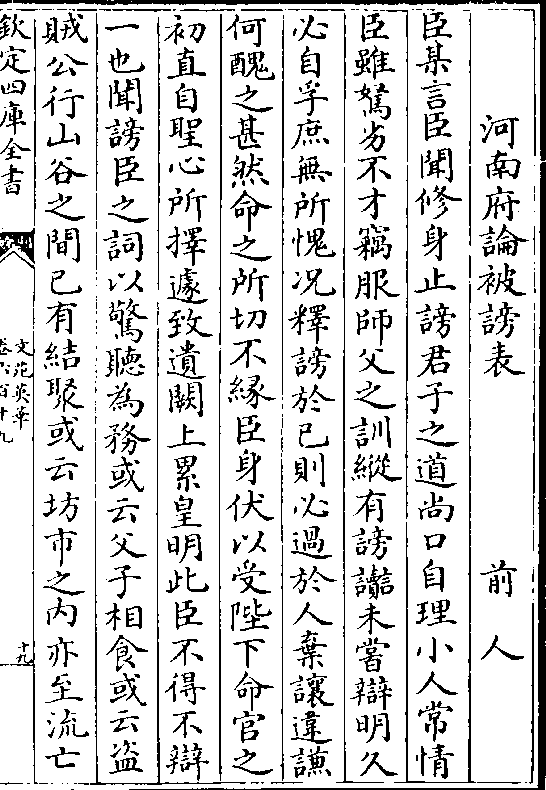 河南府論被謗表 前人
臣某言臣聞修身止謗君子之道尚口自理小人常情
臣雖駑劣不才竊服師父之訓縱有謗讟未嘗辯明久
必自孚庶無所愧况釋謗於已則必過於人棄讓違謙
何醜之甚然命之所切不緣臣身伏以受陛下命官之
初直自聖心所擇遽致遺闕上累皇明此臣不得不辯
一也聞謗臣之詞以驚聽為務或云父子相食或云盗
賊公行山谷之間已有結聚或云坊市之内亦至流亡
欽定四庫全書
文苑英華
卷六百十九
十九